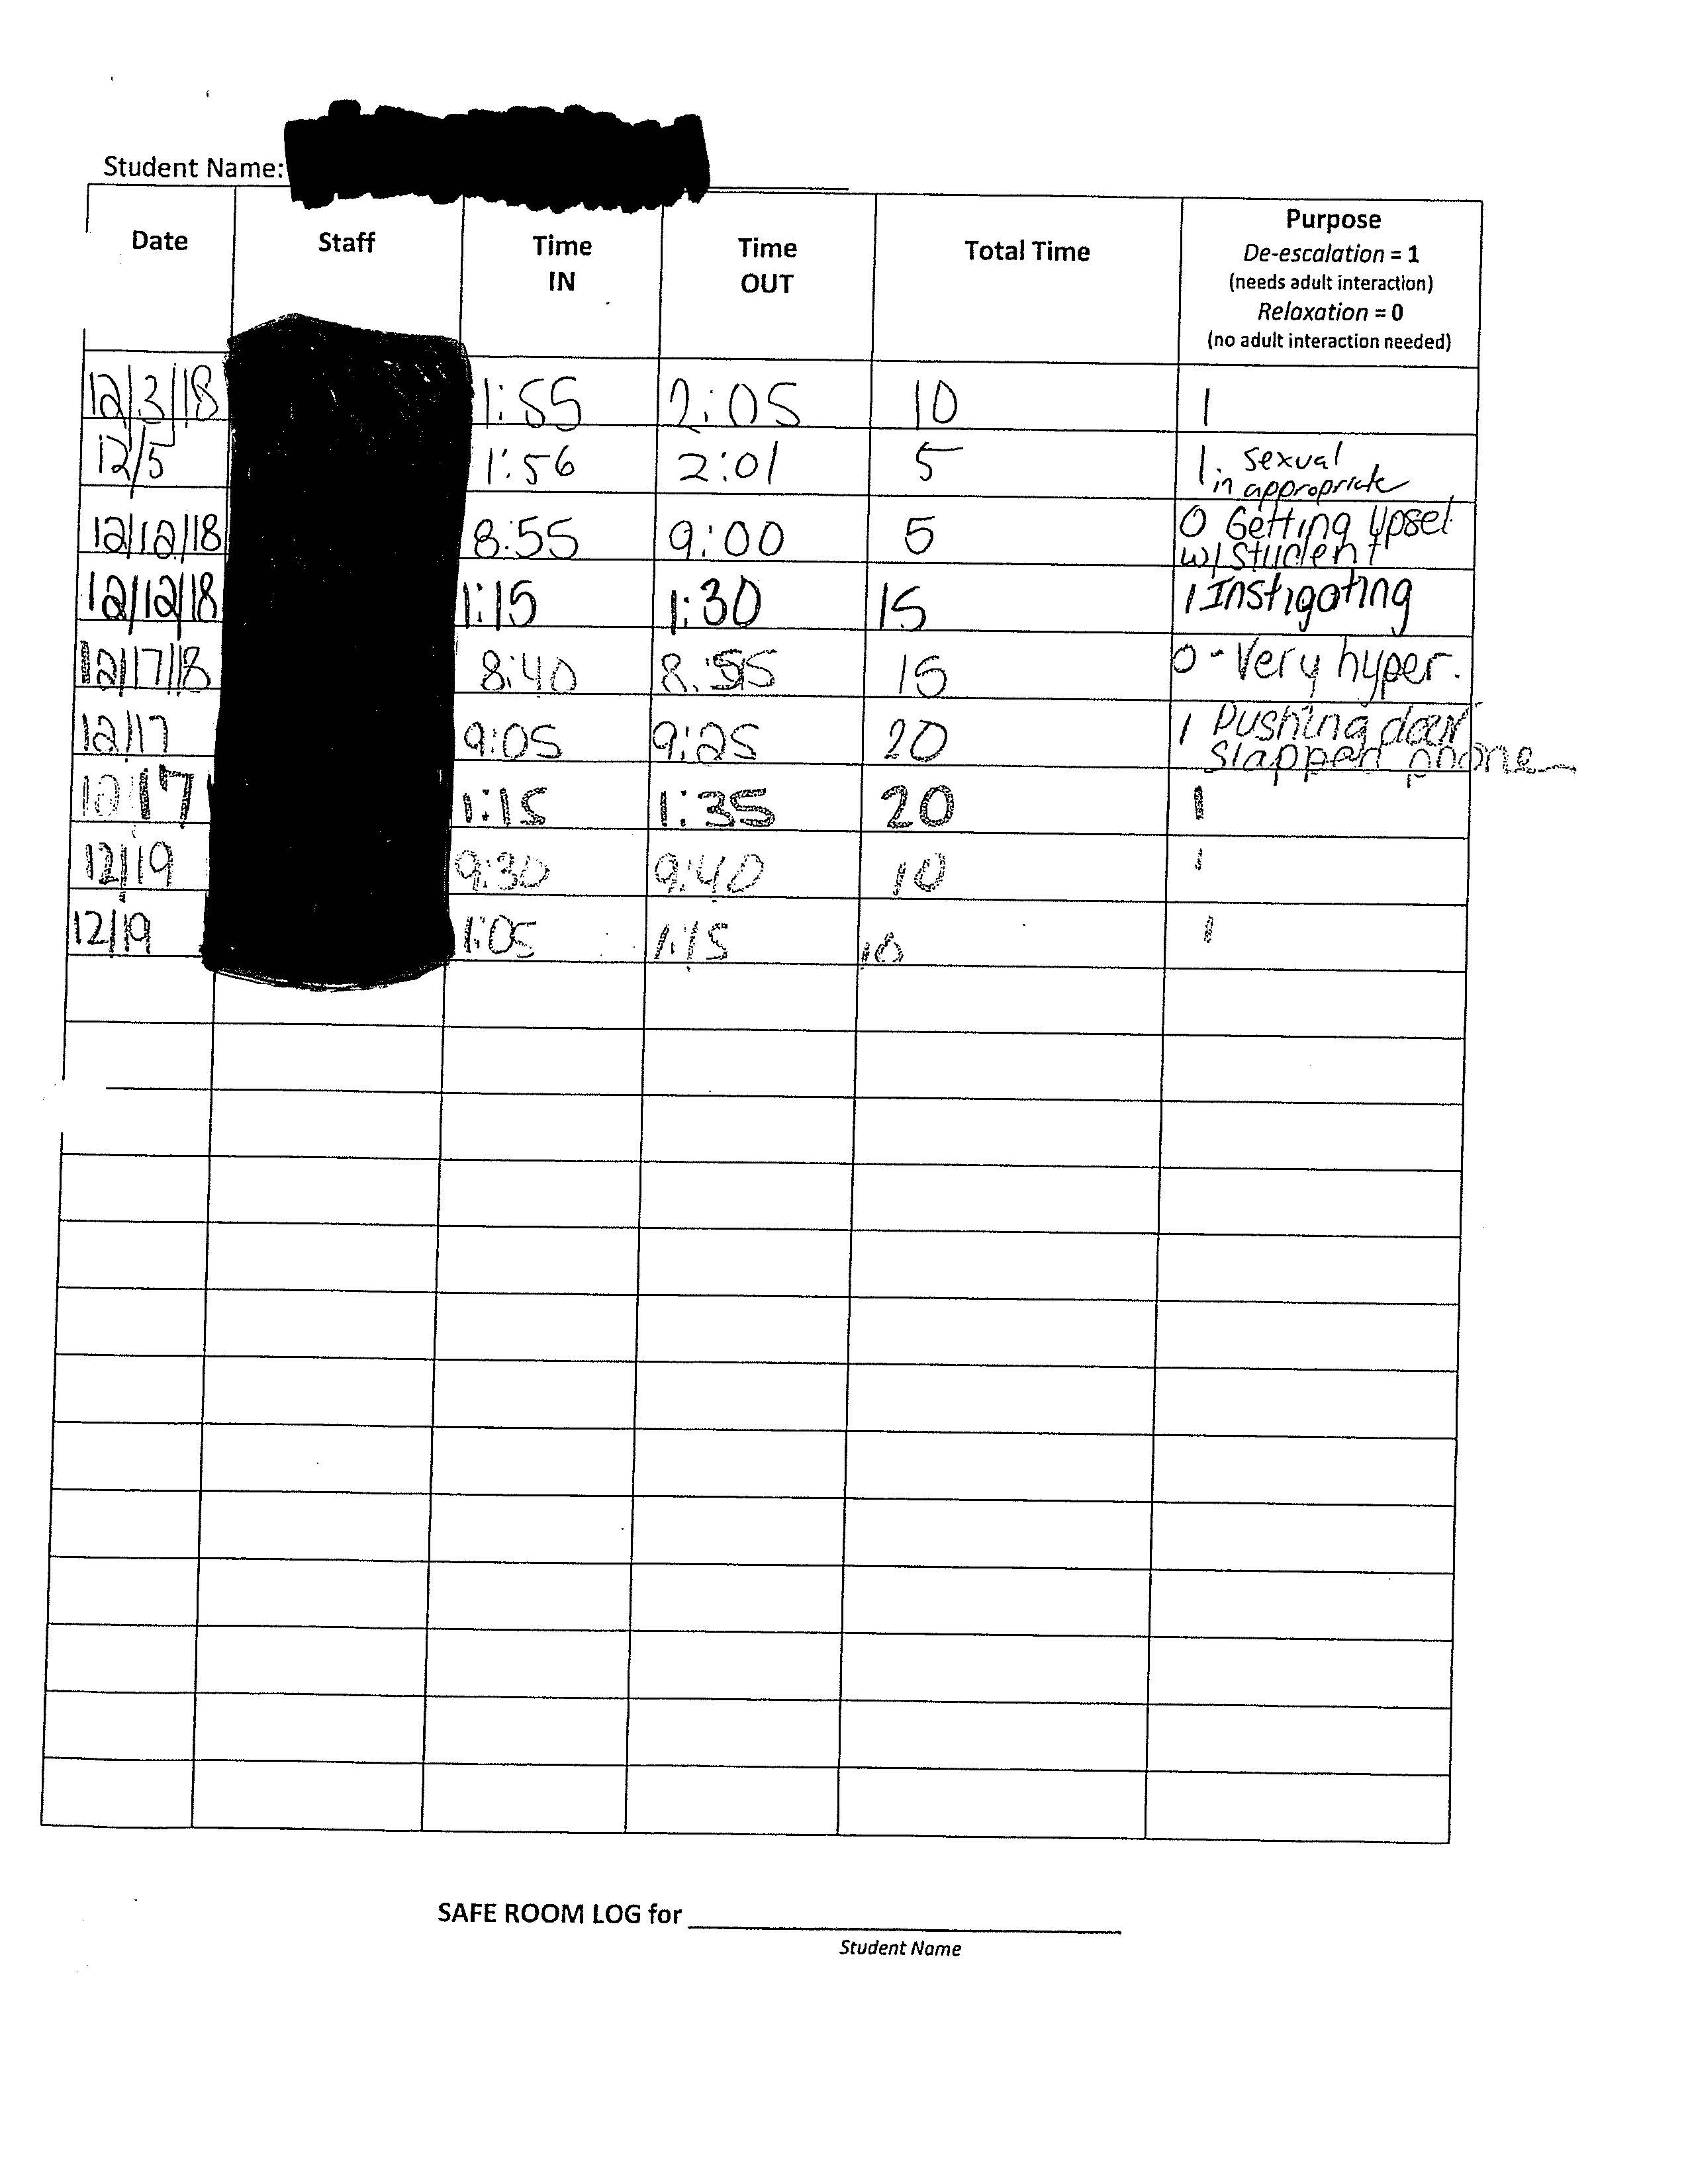 Student Name:
Date Staff Time IN Time OUT Total Time Purpose
De-escalation = 1
(needs adult interaction)
Relaxation = 0
(no adult interaction needed)
12/3/18 1:55 2:05 10 1
12/5 1:56 2:01 5 1 sexual
inappropriate
12/12/18 8:55 9:00 5 0 Getting Upset
w/ Student
12/12/18 1:15 1:30 15 1 Instigating
12/17/18 8:40 8:55 15 0 - Very hyper.
12/17 9:05 9:25 20 1 Pushing door
Slapped phone
12/17 1:15 1:35 20 1
12/19 9:30 9:40 10 1
12/19 1:05 1:15 10 1
SAFE ROOM LOG for
Student Name